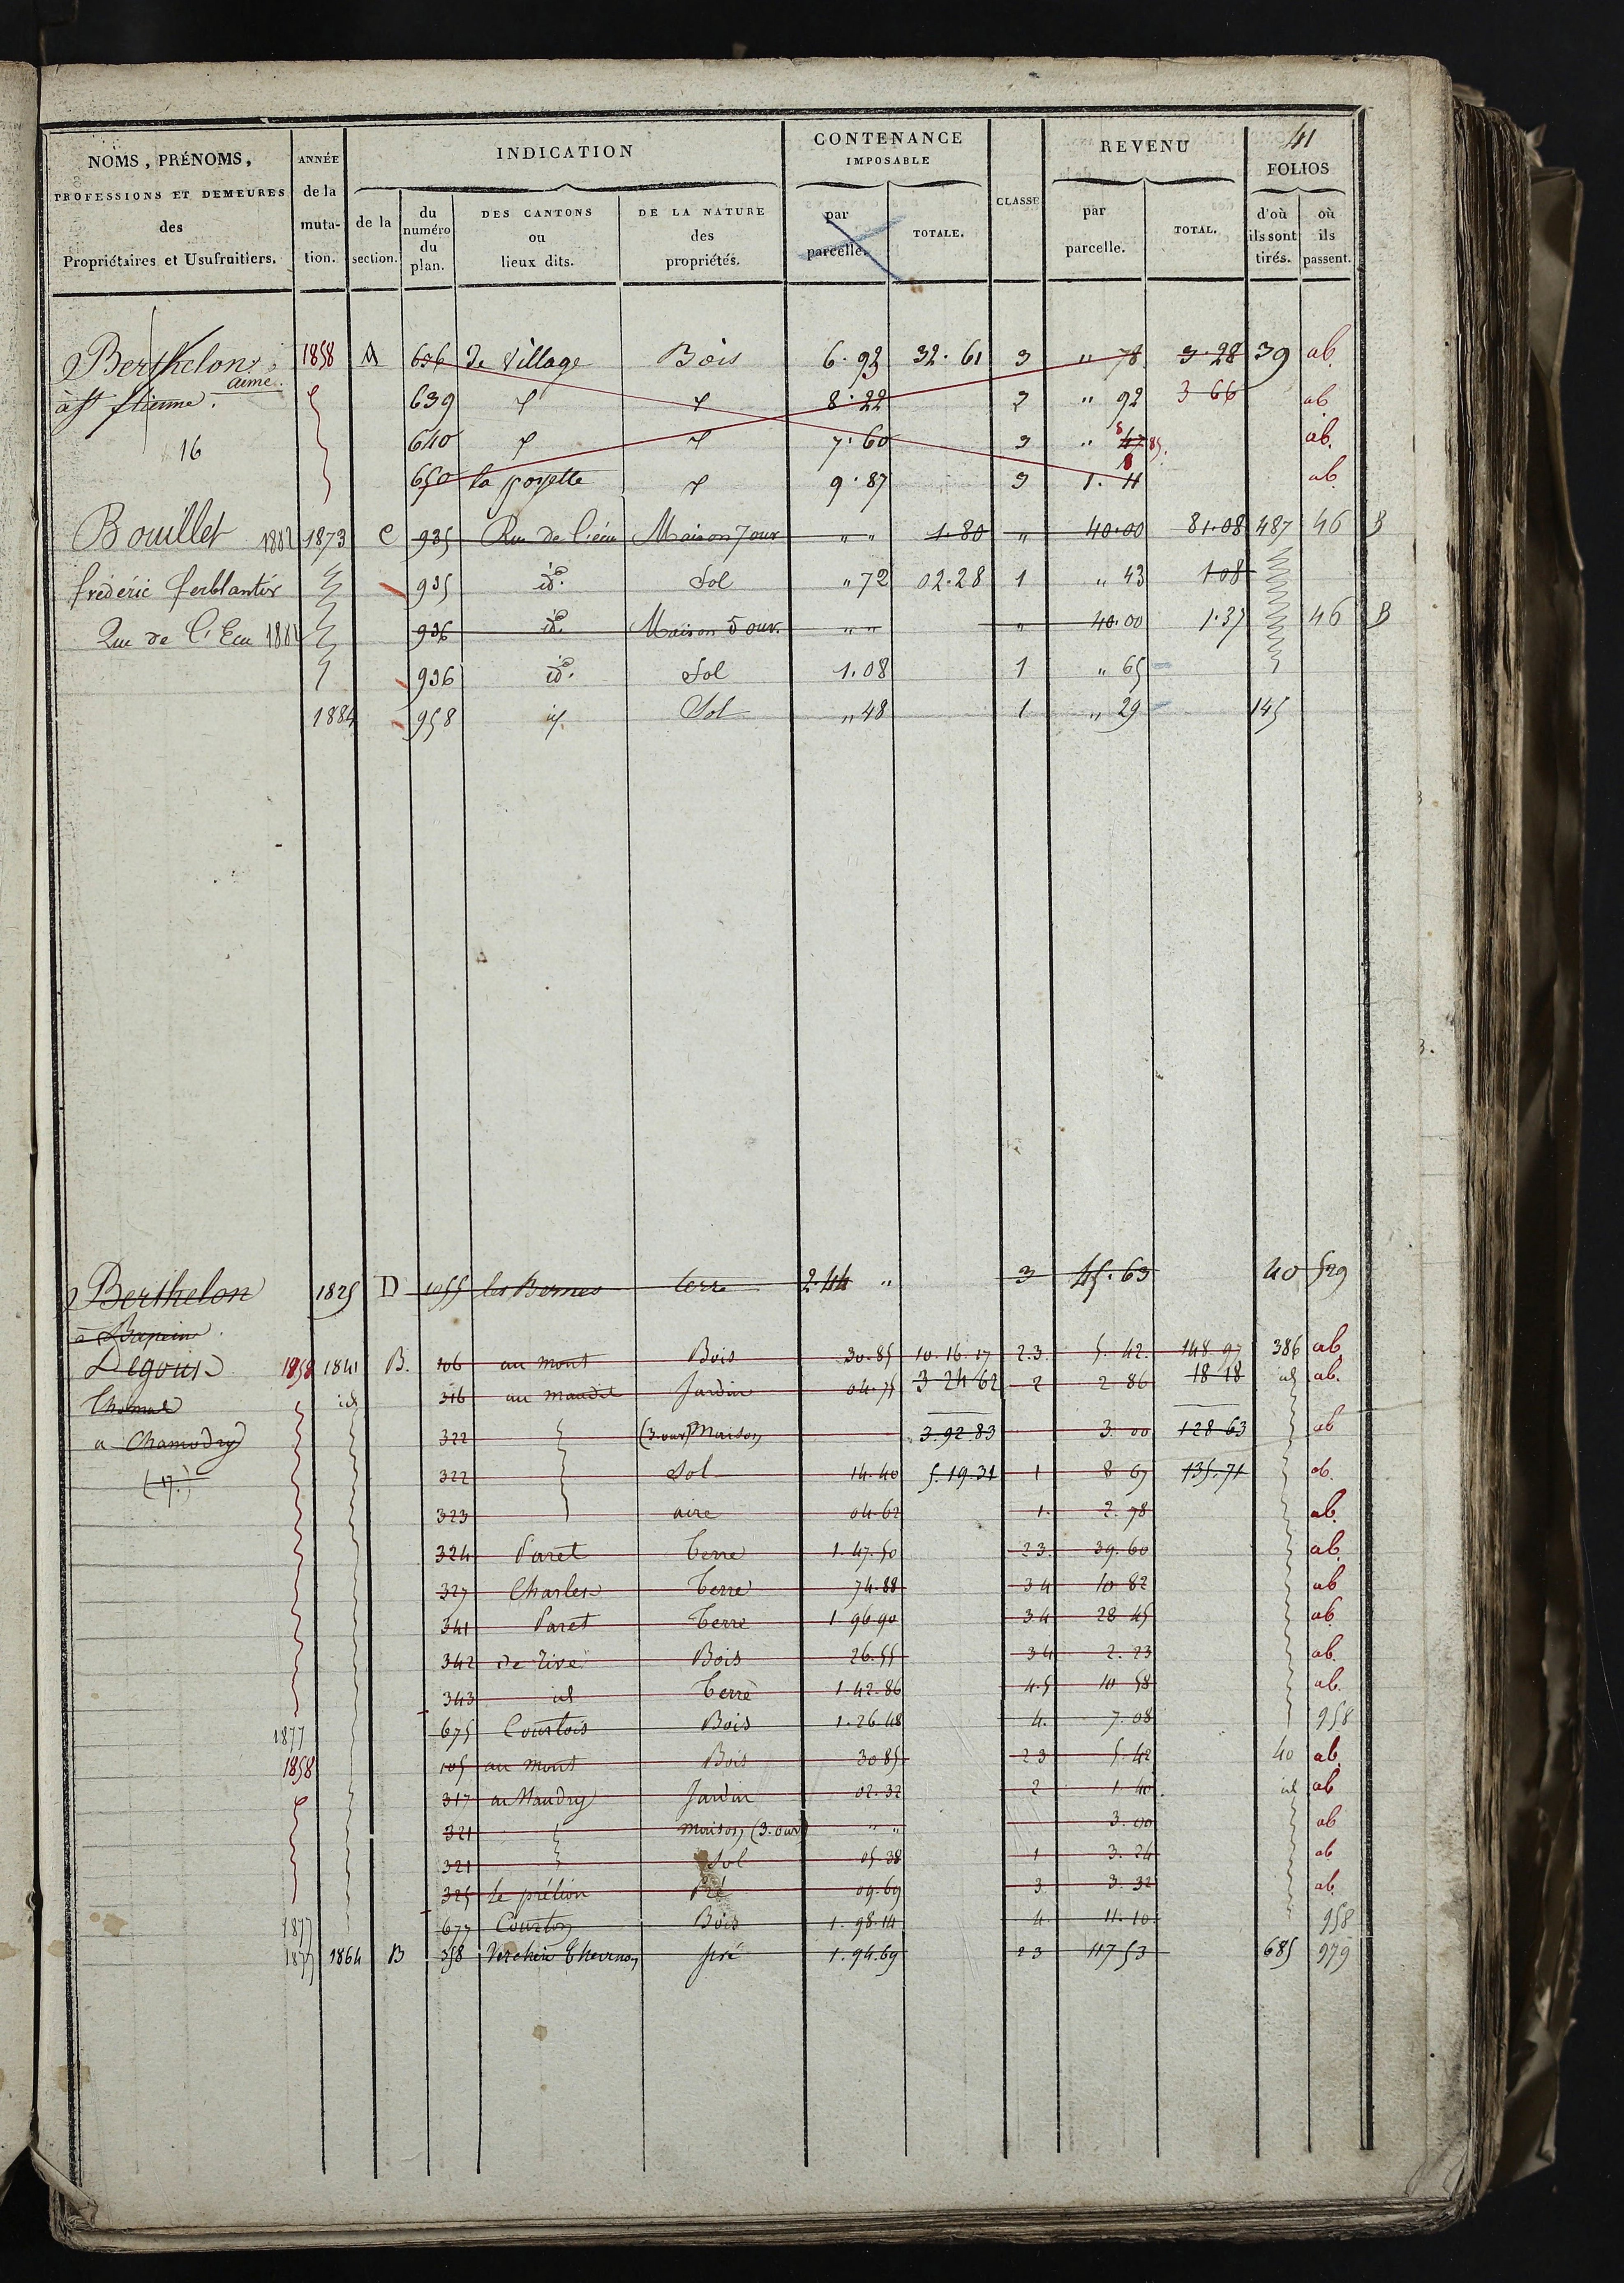 41
NOMS, PRÉNOMS, PROFESSIONS ET DEMEURES des Propriétaires et Usufruitiers.
ANNÉE de la muta- tion.
INDICATION
de la section.
du numéro du plan.
DES CANTONS ou lieux dits.
DE LA NATURE des propriétés.
CONTENANCE IMPOSABLE
par parcelle.
TOTALE.
CLASSE
REVENU
par parcelle.
TOTAL.
FOLIOS
d'où ils sont tirés.
où ils passent.
Berthelon 1858 A 636 de Village Bois 6.92 32.61 3 " 78 3.28 39 ab.
aimé.
à St Etienne. 639 8.22 3 " 92 3 66 ab
16 640 7.60 3 " 85. ab.
650 la 9.87 3 1.11 ab
Bouillet 1882 1873 C 935 Rue de l'écu Maison 7 ouv " " 1.80 " 40.00 81.08 487 46 B
frédéric ferblantier 935 id. Sol " 72 02.28 1 " 43 1 08
Rue de l'Ecu 1882 936 id. Maison 5 ouv. " " " 40.00 1.37 46 B
936 id. Sol 1.08 1 " 65
1884 958 id. Sol " 48 1 " 29 145
Berthelon 1825 D 1055 les Bernes terre 2.44 " 3 45.63 40 529
à
Degouis 1858 1841 B. 106 au mont Bois 30.85 10.16.17 2.3 5.42. 148 97 386 ab
Thomas id 316 au Maudit Jardin 04.75 3 24 62 2 2 86 18 18 id ab.
a Chamodry 322 (3 ouv) Maison 3.92 83 3.00 128 63 ab
(17.) 322 Sol 14.40 5.19.31 1 8 67 135.71 ab.
323 aire 04.62 1. 2.78 ab.
324 Paret terre 1.47.50 2 3. 39.60 ab.
327 Charles terre 74.88 3 4 10 82 ab
341 Paret terre 1 96 90 3 4 28 45 ab.
342 de rive Bois 26.55 3 4 2.23 ab.
343 id terre 1.42.86 4.5 10 58 ab.
1877 675 Courtois Bois 1.26.48 4. 7.08 958
1858 105 au mont Bois 30 85 2 3 5.42 40 ab
317 au Maudry Jardin 02.32 2 1.40 id ab
321 maison (3. ouv) " " 3.00 ab
321 Sol 05.38 1 3.24 ab
325 le prélion Pré 09.69 3 3.32 ab.
1877 677 Bois 1.98.14 4. 11.10 958
1877 1864 B 358 Verchère Thevenon pré 1.94.69 2 3 117 53 685 979